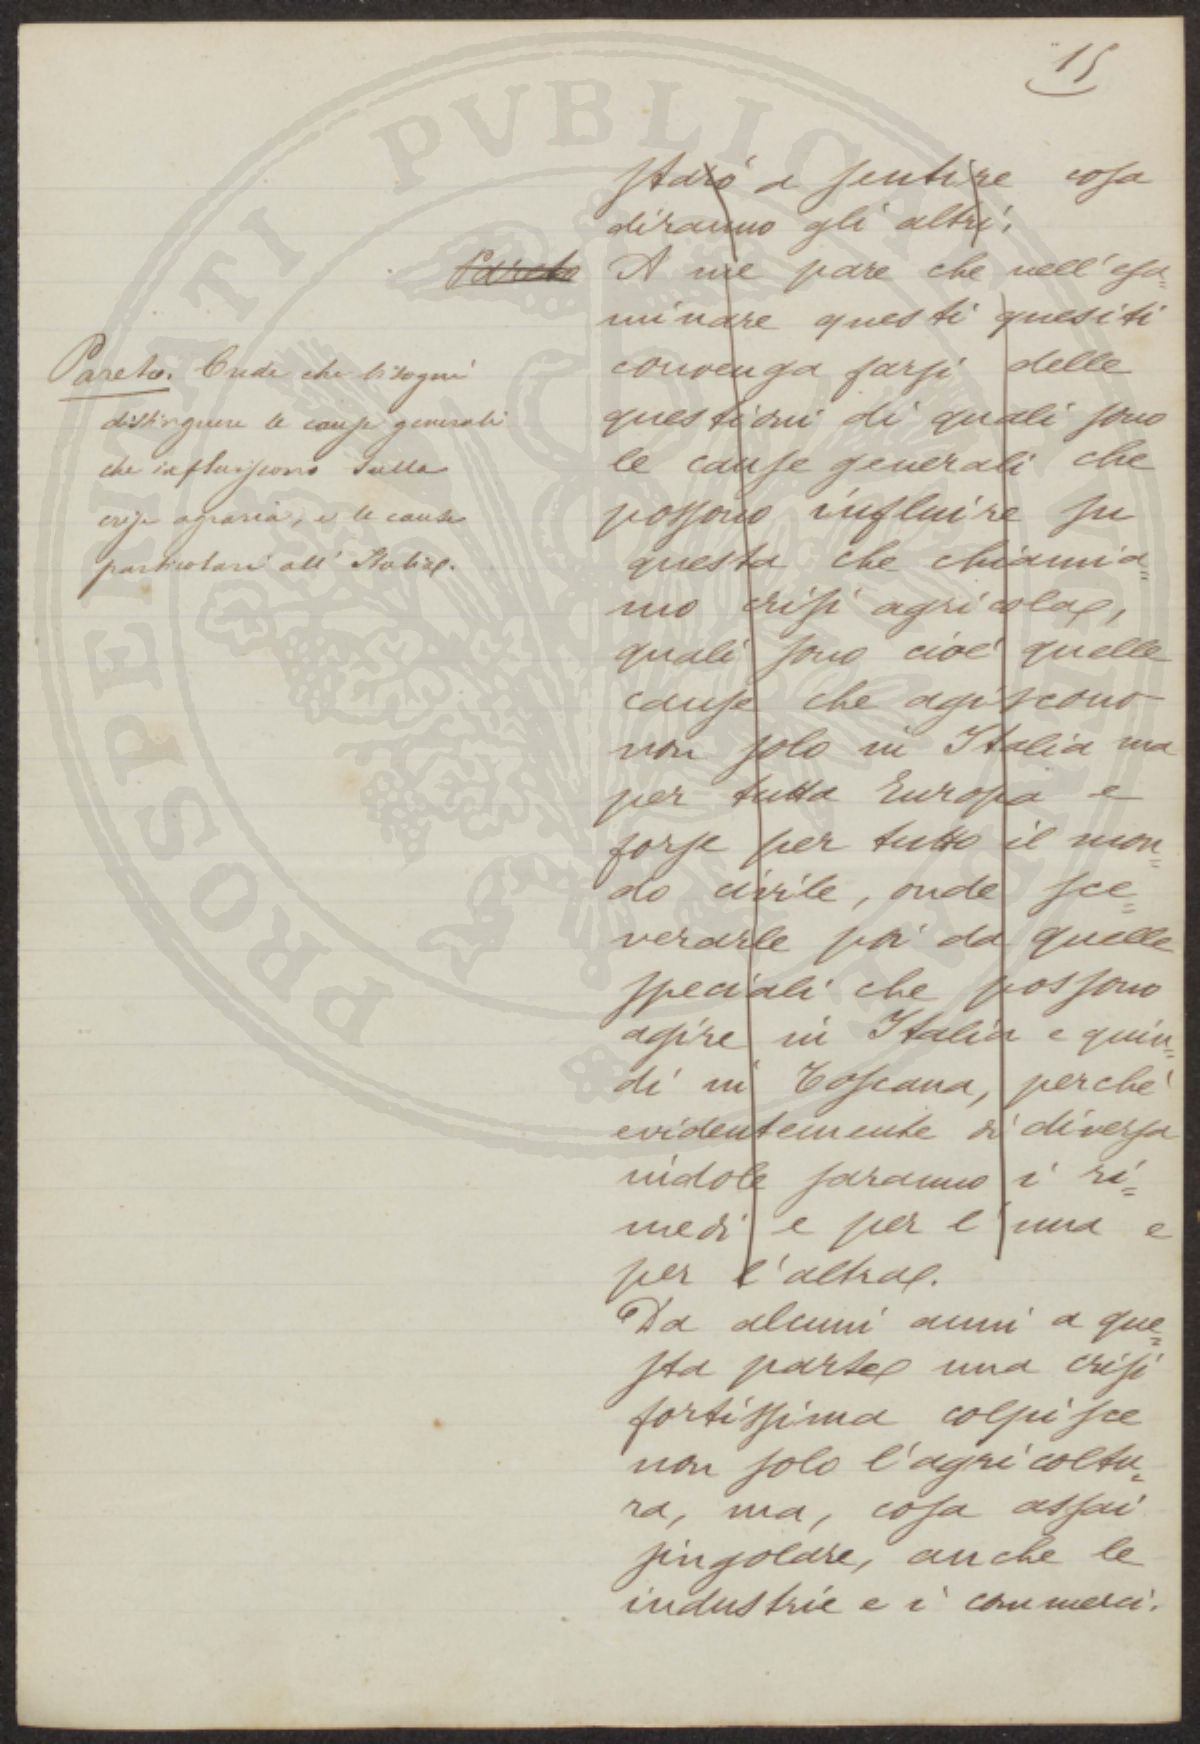 15
starò a sentire cosa
diranno gli altri.
Pareto
A me pare che nell'esa=
minare questi quesiti
convenga farsi delle
questioni di quali sono
le cause generali che
possono influire su
questa che chiamia=
mo crisi agricola,
quali sono cioè quelle
cause che agiscono
non solo in Italia ma
per tutta Europa e
forse per tutto il mon=
do civile, onde sce=
verarle poi da quelle
speciali che possono
agire in Italia e quin=
di in Toscana, perché
evidentemente di diversa
indole saranno i ri=
medi e per l'una e
per l'altra.
Da alcuni anni a que=
sta parte una crisi
fortissima colpisce
non solo l'agricoltu=
ra, ma, cosa assai
singolare, anche le
industrie e i commerci.
Pareto. Crede che bisogni
distinguere le cause generali
che influiscono sulla
crisi agraria, e le cause
particolari all'Italia.
PROSPERITATI PVBLICAE